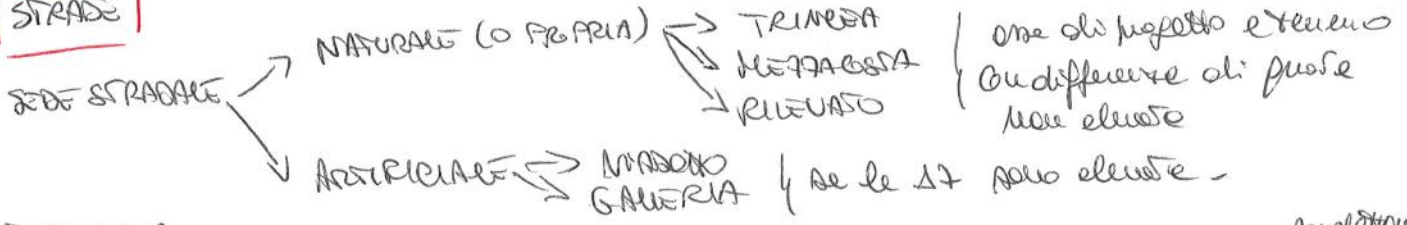 STRADE
SEDE STRADALE
NATURALE (O PROPRIA)
TRINCEA
MEZZACOSTA
RILEVATO
asse di progetto e terreno
con differenze di quota
non elevate
ARTIFICIALE
VIADOTTO
GALLERIA
se le ΔZ sono elevate -